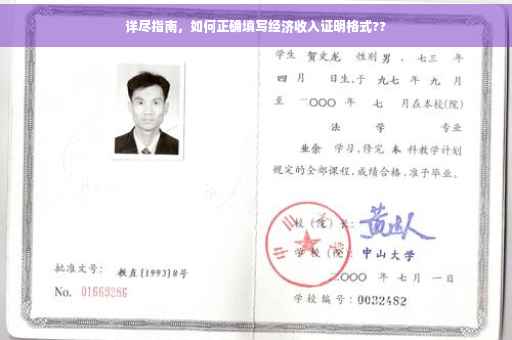 详尽指南，如何正确填写经济收入证明格式??
学生 贺文龙 性别 男，七三 年
四 月 日生，于 九七 年 九 月
至 二〇〇〇 年 七 月在本校(院)
法 学 专业
业余 学习，修完 本 科教学计划
规定的全部课程，成绩合格，准予毕业。
校(院)长：
学校(院)：中山大学
二〇〇〇 年 七 月 一 日
学校编号：0032482
批准文号：教直(1993)8号
No. 01663286